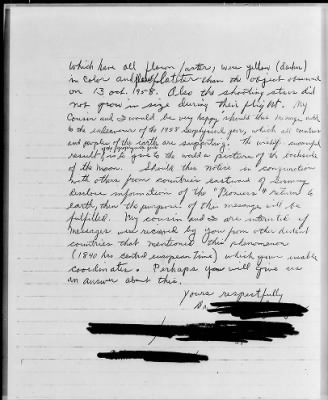 which have all flown faster, were yellow (darker)
in color and flatter than the object observed
on 13 oct. 1958. Also the shooting stars did
not grow in size during their flight. My
Cousin and I would be very happy should this message add
to the endeavour of the 1958 Geophysical year, which all nations
and peoples of the earth are supporting. The
result is to give to the world a picture of the backside
of the moon. Should this notice in conjunction
with others from countries eastward of Germany
disclose information of the "Pioneers" return to
earth, then the purpose of this message will be
fulfilled. My cousin and I are interested if
messages were received by you from other distant
countries that mentioned this phenomenon
(1840 hrs central european time) which your
coordinates. Perhaps you will give us
an answer about this.
Yours respectfully